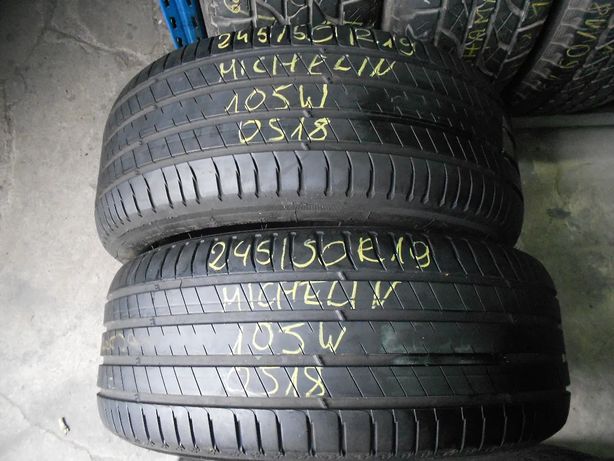 245/50R19
MICHELIN
105W
0518
245/50R19
MICHELIN
105W
0518